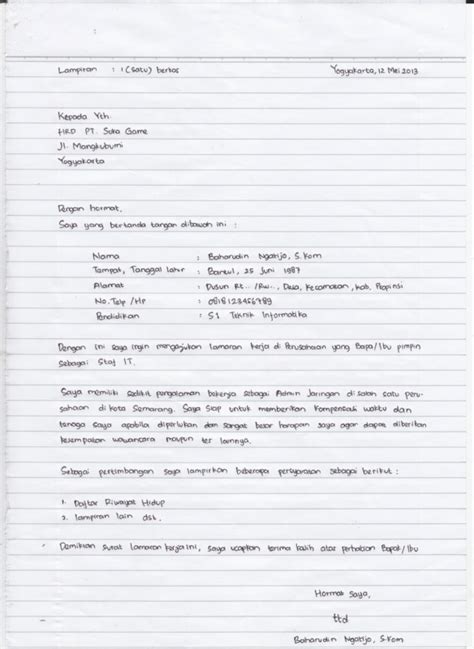 Lampiran : 1 (Satu) berkas Yogyakarta, 12 Mei 2013
Kepada Yth.
HRD PT. Suka Game
Jl. Mangkubumi
Yogyakarta
Dengan hormat,
Saya yang bertanda tangan dibawah ini :
Nama : Baharudin Ngatijo, S.Kom
Tempat, Tanggal lahir : Bantul, 25 Juni 1987
Alamat : Dusun Rt.. /Rw.., Desa, Kecamatan, Kab, Propinsi
No. Telp /HP : 0818123456789
Pendidikan : S1 Teknik Informatika
Dengan ini saya ingin mengajukan lamaran kerja di Perusahaan yang Bapa/Ibu pimpin
sebagai Staf IT.
Saya memiliki sedikit pengalaman bekerja sebagai Admin Jaringan di salah satu peru-
sahaan di kota Semarang. Saya siap untuk memberikan kompensasi waktu dan
tenaga saya apabila diperlukan dan sangat besar harapan saya agar dapat diberikan
kesempatan wawancara maupun tes lainnya.
Sebagai pertimbangan saya lampirkan beberapa persyaratan sebagai berikut :
1. Daftar Riwayat Hidup
2. lampiran lain dst.
Demikian surat lamaran kerja ini, saya ucapkan terima kasih atas perhatian Bapak/Ibu
Hormat Saya,
ttd
Baharudin Ngatijo, S.Kom